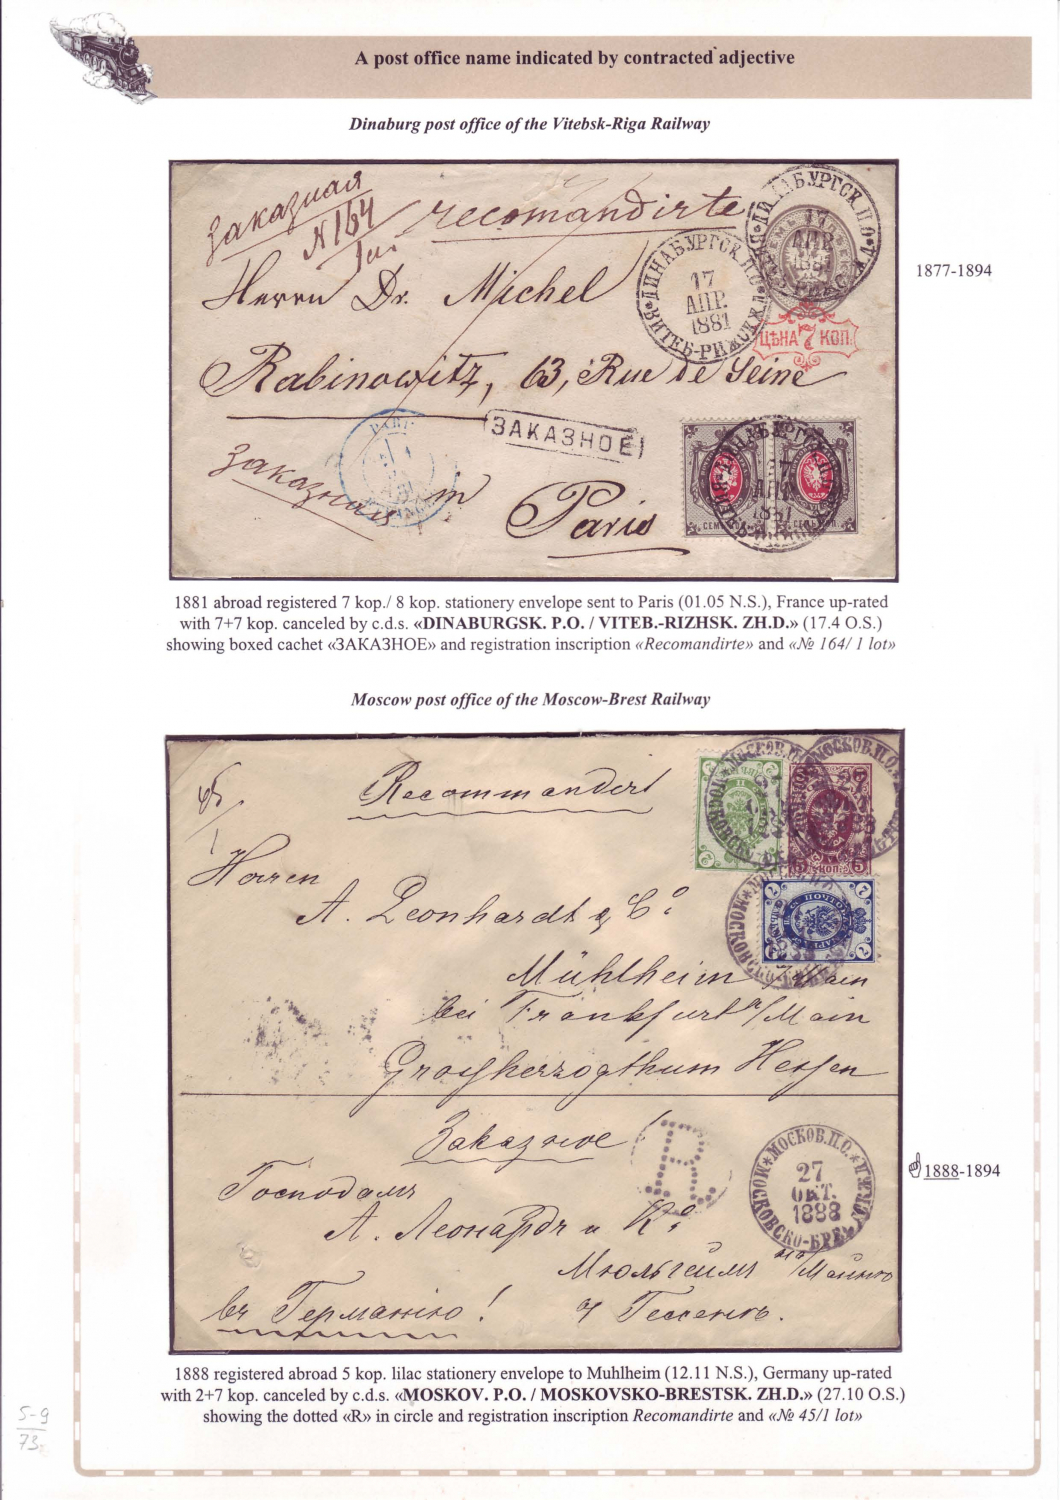 A post office name indicated by contracted adjective
Dinaburg post office of the Vitebsk-Riga Railway
заказная
N 164
1 lot
recomandirte
ДИНАБУРГСК. П.О.
17
АПР.
1881
ДИНАБУРГСК. П.О.
17
АПР.
1881
ВИТЕБ-РИЖСК. Ж.Д.
ЦѢНА 7 КОП.
Herrn Dr. Michel
Rabinowitz, 63, Rue de Seine
ЗАКАЗНОЕ
заказная
in
Paris
ДИНАБУРГСК.
АПР.
1881
1877-1894
1881 abroad registered 7 kop./ 8 kop. stationery envelope sent to Paris (01.05 N.S.), France up-rated
with 7+7 kop. canceled by c.d.s. «DINABURGSK. P.O. / VITEB.-RIZHSK. ZH.D.» (17.4 O.S.)
showing boxed cachet «ЗАКАЗНОЕ» and registration inscription «Recomandirte» and «№ 164/ 1 lot»
Moscow post office of the Moscow-Brest Railway
Recommandirt
МОСКОВ. П.О.
Herren
A. Leonhardt & Co.
Mühlheim a/Main
bei Frankfurt a/Main
Grossherzogthum Hessen
Заказное
R
МОСКОВ. П.О.
27
ОКТ.
1888
МОСКОВСКО-БРЕСТСК. Ж.Д.
Господамъ
А. Леонардъ и Ко.
Мюльгеймъ на/Майнѣ
въ Германію!
въ Гессенѣ.
1888-1894
1888 registered abroad 5 kop. lilac stationery envelope to Muhlheim (12.11 N.S.), Germany up-rated
with 2+7 kop. canceled by c.d.s. «MOSKOV. P.O. / MOSKOVSKO-BRESTSK. ZH.D.» (27.10 O.S.)
showing the dotted «R» in circle and registration inscription Recomandirte and «№ 45/1 lot»
5-9
73